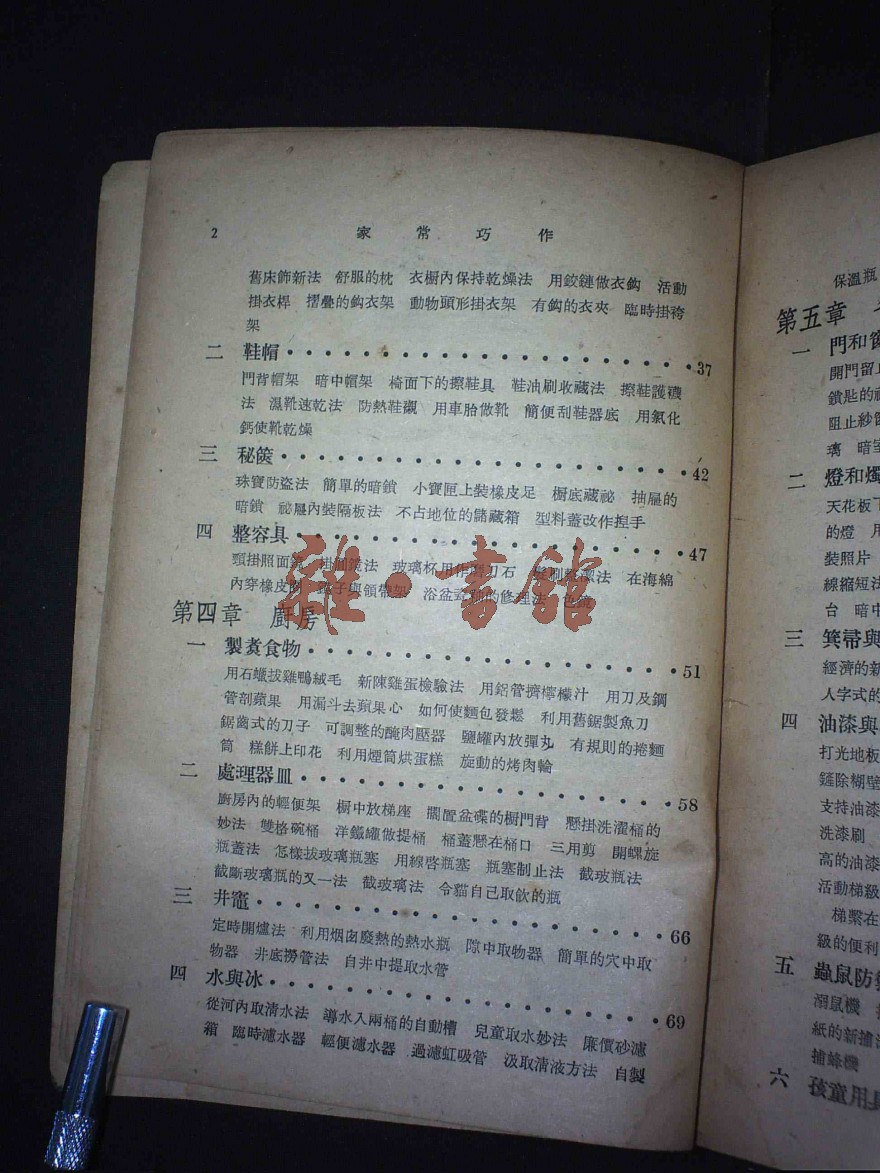 2 家常巧作
舊床飾新法 舒服的枕 衣橱內保持乾燥法 用鉸鏈做衣鈎 活動
掛衣桿 摺疊的鈎衣架 動物頭形掛衣架 有鈎的衣夾 臨時掛袴
架
二 鞋帽 37
門背帽架 暗中帽架 椅面下的擦鞋具 鞋油刷收藏法 擦鞋護襪
法 濕靴速乾法 防熱鞋襯 用車胎做靴 簡便刮鞋器底 用氯化
鈣使靴乾燥
三 秘篋 42
珠寶防盜法 簡單的暗鎖 小寶匣上裝橡皮足 橱底藏祕 抽屜的
暗鎖 祕屜內裝隔板法 不占地位的儲藏箱 型料蓋改作揑手
四 整容具 47
頸掛照面鏡 玻璃杯用作磨刀石 在海綿
內穿橡皮 與領帶架 浴盆 的修理法
第四章 廚房
一 製煑食物 51
用石蠟拔雞鴨絨毛 新陳雞蛋檢驗法 用鋁管擠檸檬汁 用刀及鋼
管剖蘋果 用漏斗去蘋果心 如何使麵包發鬆 利用舊鋸製魚刀
鋸齒式的刀子 可調整的醃肉壓器 鹽罐內放彈丸 有規則的捲麵
筒 糕餅上印花 利用煙筒烘蛋糕 旋動的烤肉輪
二 處理器皿 58
廚房內的輕便架 橱中放梯座 擱置盆碟的橱門背 懸掛洗濯桶的
妙法 雙格碗桶 洋鐵罐做提桶 桶蓋懸在桶口 三用剪 開螺旋
瓶蓋法 怎樣拔玻璃瓶塞 用線啓瓶塞 瓶塞制止法 截玻瓶法
截斷玻璃瓶的又一法 截玻璃法 令貓自己取飲的瓶
三 井竈 66
定時開爐法 利用烟囱廢熱的熱水瓶 隙中取物器 簡單的穴中取
物器 井底撈管法 自井中提取水管
四 水與冰 69
從河內取清水法 導水入兩桶的自動槽 兒童取水妙法 廉價砂濾
箱 臨時濾水器 輕便濾水器 過濾虹吸管 汲取清液方法 自製
雜·書館
保溫瓶
第五章
一 門和窗
開門留
鎖匙的
阻止紗
璃 暗
二 燈和燭
天花板下
的燈 用
裝照片
線縮短法
台 暗中
三 箕帚與
經濟的新
人字式的
四 油漆與
打光地板
鏟除糊壁
支持油漆
洗漆刷
高的油漆
活動梯級
梯繫在
級的便利
五 蟲鼠防
溺鼠機
紙的新捕
捕蜂機
六 孩童用具